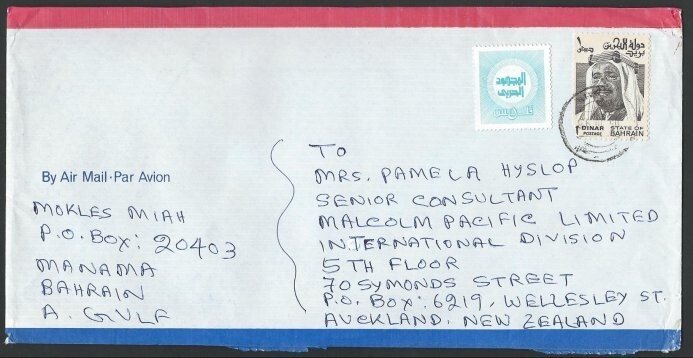 المجهود
الحربي
فلس
دولة البحرين
بريد
1 DINAR STATE OF
POSTAGE BAHRAIN
By Air Mail·Par Avion
MOKLES MIAH
P.O. BOX: 20403
MANAMA
BAHRAIN
A. GULF
TO
MRS. PAMELA HYSLOP
SENIOR CONSULTANT
MALCOLM PACIFIC LIMITED
INTERNATIONAL DIVISION
5TH FLOOR
70 SYMONDS STREET
P.O. BOX: 6219, WELLESLEY ST.
AUCKLAND, NEW ZEALAND